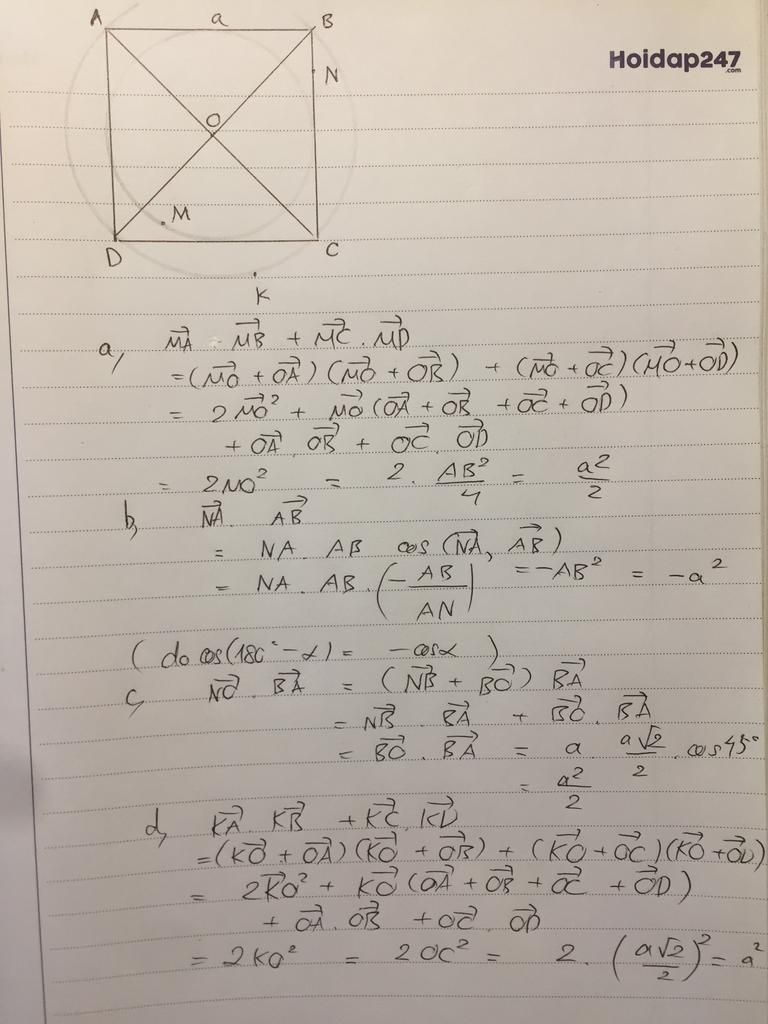 A a B
Hoidap247
.com
N
O
M
D C
K
a, $\overrightarrow{MA} . \overrightarrow{MB} + \overrightarrow{MC} . \overrightarrow{MD}$
$= (\overrightarrow{MO} + \overrightarrow{OA})(\overrightarrow{MO} + \overrightarrow{OB}) + (\overrightarrow{MO} + \overrightarrow{OC})(\overrightarrow{MO} + \overrightarrow{OD})$
$= 2\overrightarrow{MO}^2 + \overrightarrow{MO}(\overrightarrow{OA} + \overrightarrow{OB} + \overrightarrow{OC} + \overrightarrow{OD})$
$+ \overrightarrow{OA} . \overrightarrow{OB} + \overrightarrow{OC} . \overrightarrow{OD}$
$= 2MO^2 = 2 . \frac{AB^2}{4} = \frac{a^2}{2}$
b, $\overrightarrow{NA} . \overrightarrow{AB}$
$= NA . AB . cos(\overrightarrow{NA}, \overrightarrow{AB})$
$= NA . AB . \left(-\frac{AB}{AN}\right) = -AB^2 = -a^2$
(do cos(180° - α) = -cosα)
c, $\overrightarrow{NO} . \overrightarrow{BA} = (\overrightarrow{NB} + \overrightarrow{BO}) \overrightarrow{BA}$
$= \overrightarrow{NB} . \overrightarrow{BA} + \overrightarrow{BO} . \overrightarrow{BA}$
$= \overrightarrow{BO} . \overrightarrow{BA} = a . \frac{a\sqrt{2}}{2} . cos 45°$
$= \frac{a^2}{2}$
d, $\overrightarrow{KA} . \overrightarrow{KB} + \overrightarrow{KC} . \overrightarrow{KD}$
$= (\overrightarrow{KO} + \overrightarrow{OA})(\overrightarrow{KO} + \overrightarrow{OB}) + (\overrightarrow{KO} + \overrightarrow{OC})(\overrightarrow{KO} + \overrightarrow{OD})$
$= 2\overrightarrow{KO}^2 + \overrightarrow{KO}(\overrightarrow{OA} + \overrightarrow{OB} + \overrightarrow{OC} + \overrightarrow{OD})$
$+ \overrightarrow{OA} . \overrightarrow{OB} + \overrightarrow{OC} . \overrightarrow{OD}$
$= 2KO^2 = 2OC^2 = 2 . \left(\frac{a\sqrt{2}}{2}\right)^2 = a^2$